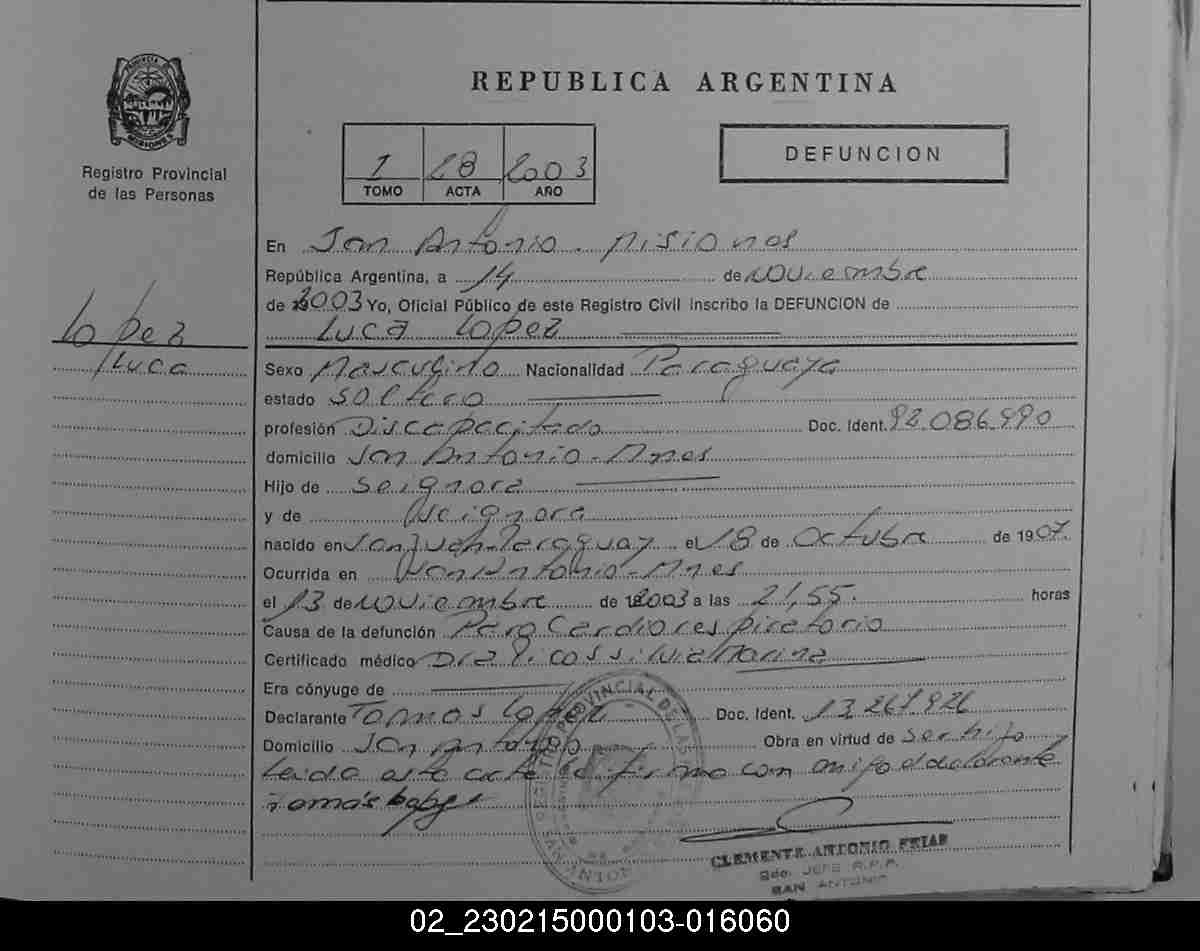 REPUBLICA ARGENTINA
Registro Provincial
de las Personas
1 28 2003
TOMO ACTA AÑO
DEFUNCION
En San Antonio - Misiones
República Argentina, a 14 de noviembre
de 2003 Yo, Oficial Público de este Registro Civil inscribo la DEFUNCION de
Luca Lopez
Lopez
Luca
Sexo Masculino Nacionalidad Paraguaya
estado Soltero
profesión Discapacitado Doc. Ident. 92.086.990
domicilio San Antonio - Mnes
Hijo de Se ignora
y de Se ignora
nacido en San Juan-Paraguay el 18 de Octubre de 1907.
Ocurrida en San Antonio - Mnes
el 13 de noviembre de 2003 a las 21,55. horas
Causa de la defunción Paro Cardiorespiratorio
Certificado médico Dra
Era cónyuge de
Declarante Tomas Lopez Doc. Ident. 13.267.926
Domicilio San Antonio Obra en virtud de ser hijo
Leida esta acta la firma con migo el declarante
Tomás Lopez
CLEMENTE ANTONIO FRIAS
JEFE R.P.P.
SAN ANTONIO
02_230215000103-016060